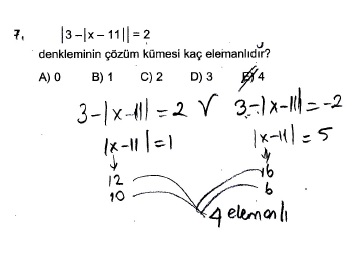 7. |3-|x-11||=2
denkleminin çözüm kümesi kaç elemanlıdır?
A) 0 B) 1 C) 2 D) 3 E) 4
3-|x-11|=2 V 3-|x-11|=-2
|x-11|=1 |x-11|=5
12 16
10 6
4 elemanlı